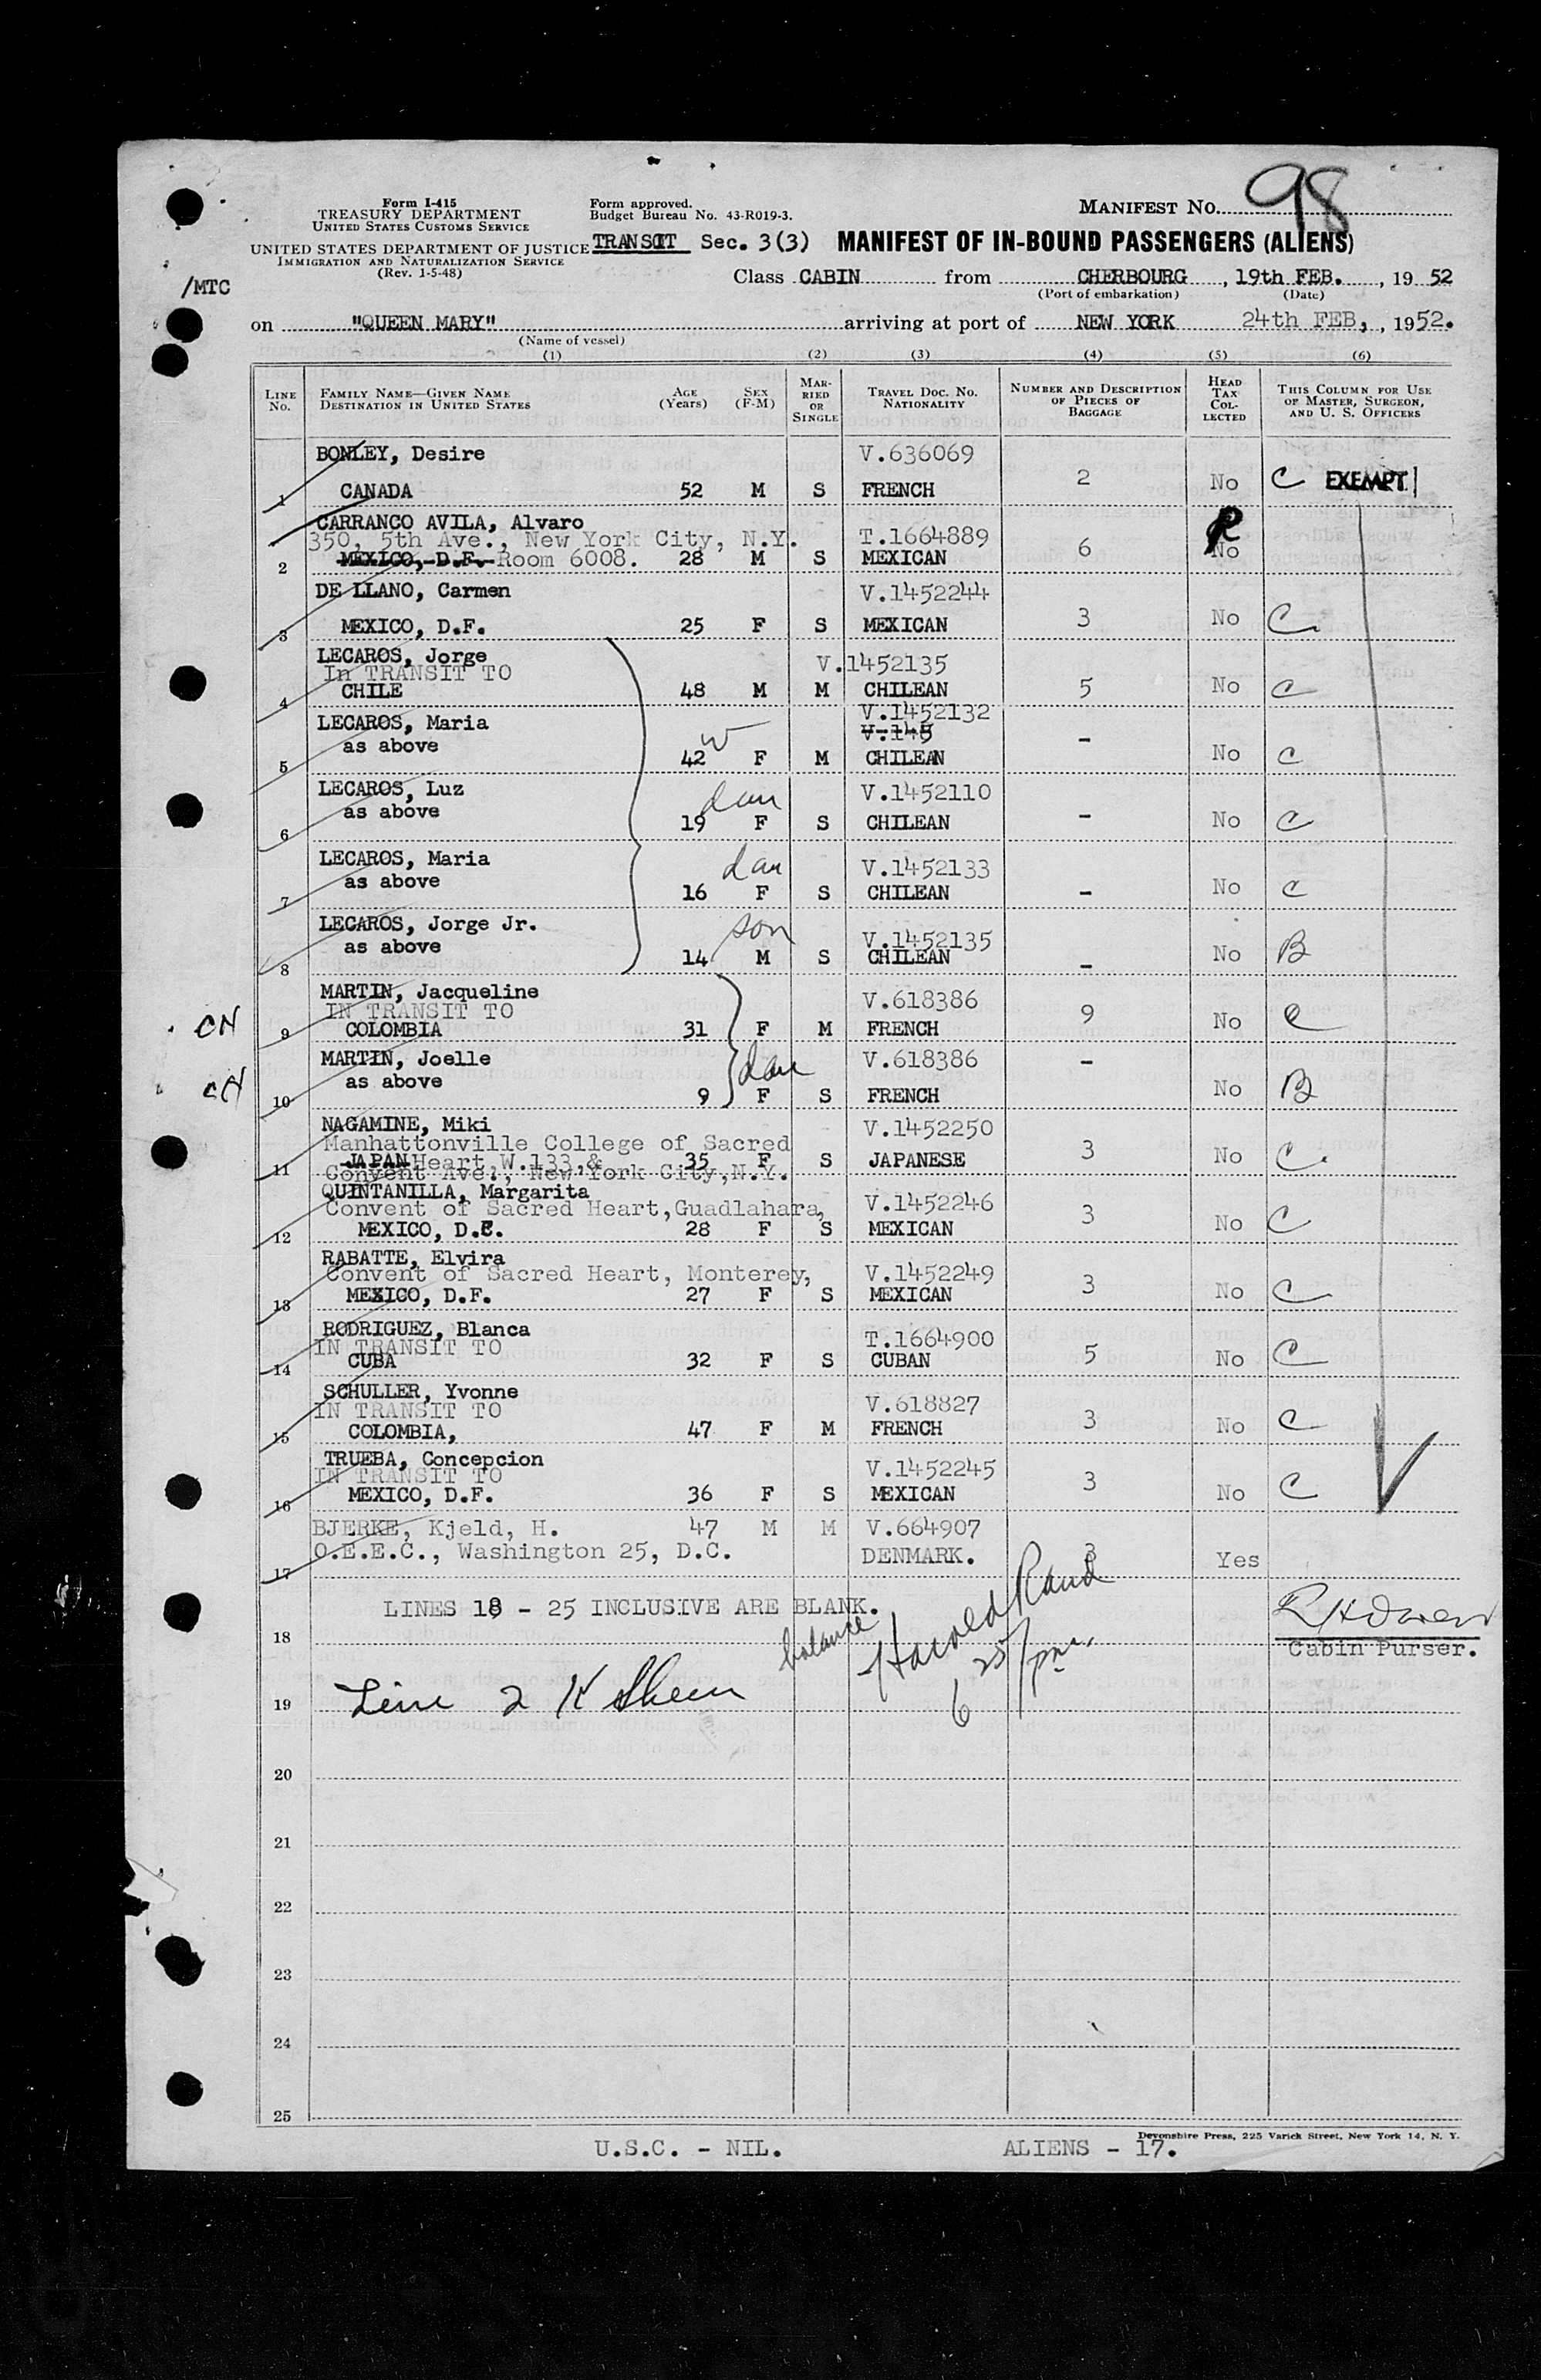 Form I-415
TREASURY DEPARTMENT
UNITED STATES CUSTOMS SERVICE
UNITED STATES DEPARTMENT OF JUSTICE
IMMIGRATION AND NATURALIZATION SERVICE
(Rev. 1-5-48)
Form approved.
Budget Bureau No. 43-R019-3.
MANIFEST No. 98
TRANSIT Sec. 3(3) MANIFEST OF IN-BOUND PASSENGERS (ALIENS)
/MTC
Class CABIN from CHERBOURG, 19th FEB., 1952
(Port of embarkation) (Date)
on "QUEEN MARY" arriving at port of NEW YORK 24th FEB, , 1952.
(Name of vessel)
(1) (2) (3) (4) (5) (6)
LINE No. FAMILY NAME—GIVEN NAME DESTINATION IN UNITED STATES AGE (Years) SEX (F-M) MARRIED OR SINGLE TRAVEL DOC. NO. NATIONALITY NUMBER AND DESCRIPTION OF PIECES OF BAGGAGE HEAD TAX COLLECTED THIS COLUMN FOR USE OF MASTER, SURGEON, AND U. S. OFFICERS
BONLEY, Desire V.636069
1 CANADA 52 M S FRENCH 2 No C EXEMPT
CARRANCO AVILA, Alvaro
350, 5th Ave., New York City, N.Y. T.1664889
2 MEXICO, D.F. Room 6008. 28 M S MEXICAN 6 No
DE LLANO, Carmen V.1452244
3 MEXICO, D.F. 25 F S MEXICAN 3 No C
LECAROS, Jorge V.1452135
In TRANSIT TO
4 CHILE 48 M M CHILEAN 5 No C
LECAROS, Maria V.1452132
as above w V.145
5 42 F M CHILEAN - No C
LECAROS, Luz V.1452110
as above dau
6 19 F S CHILEAN - No C
LECAROS, Maria V.1452133
as above dau
7 16 F S CHILEAN - No C
LECAROS, Jorge Jr. son V.1452135
as above
8 14 M S CHILEAN - No B
MARTIN, Jacqueline V.618386
IN TRANSIT TO
CN 9 COLOMBIA 31 F M FRENCH 9 No C
MARTIN, Joelle V.618386
as above dau
CN 10 9 F S FRENCH - No B
NAGAMINE, Miki V.1452250
Manhattonville College of Sacred
11 JAPAN Heart, W.133,& 35 F S JAPANESE 3 No C
Convent Ave., New York City,N.Y.
QUINTANILLA, Margarita V.1452246
Convent of Sacred Heart,Guadlahara,
12 MEXICO, D.F. 28 F S MEXICAN 3 No C
RABATTE, Elvira V.1452249
Convent of Sacred Heart, Monterey,
13 MEXICO, D.F. 27 F S MEXICAN 3 No C
RODRIGUEZ, Blanca T.1664900
IN TRANSIT TO
14 CUBA 32 F S CUBAN 5 No C
SCHULLER, Yvonne V.618827
IN TRANSIT TO
15 COLOMBIA, 47 F M FRENCH 3 No C
TRUEBA, Concepcion V.1452245
IN TRANSIT TO
16 MEXICO, D.F. 36 F S MEXICAN 3 No C
BJERKE, Kjeld, H. 47 M M V.664907
17 O.E.E.C., Washington 25, D.C. DENMARK. 3 Yes
LINES 18 - 25 INCLUSIVE ARE BLANK.
18 balance Harold Rand
Cabin Purser.
19 Line 2 6 25/pm
20
21
22
23
24
25
Devonshire Press, 225 Varick Street, New York 14, N. Y.
U.S.C. - NIL. ALIENS - 17.